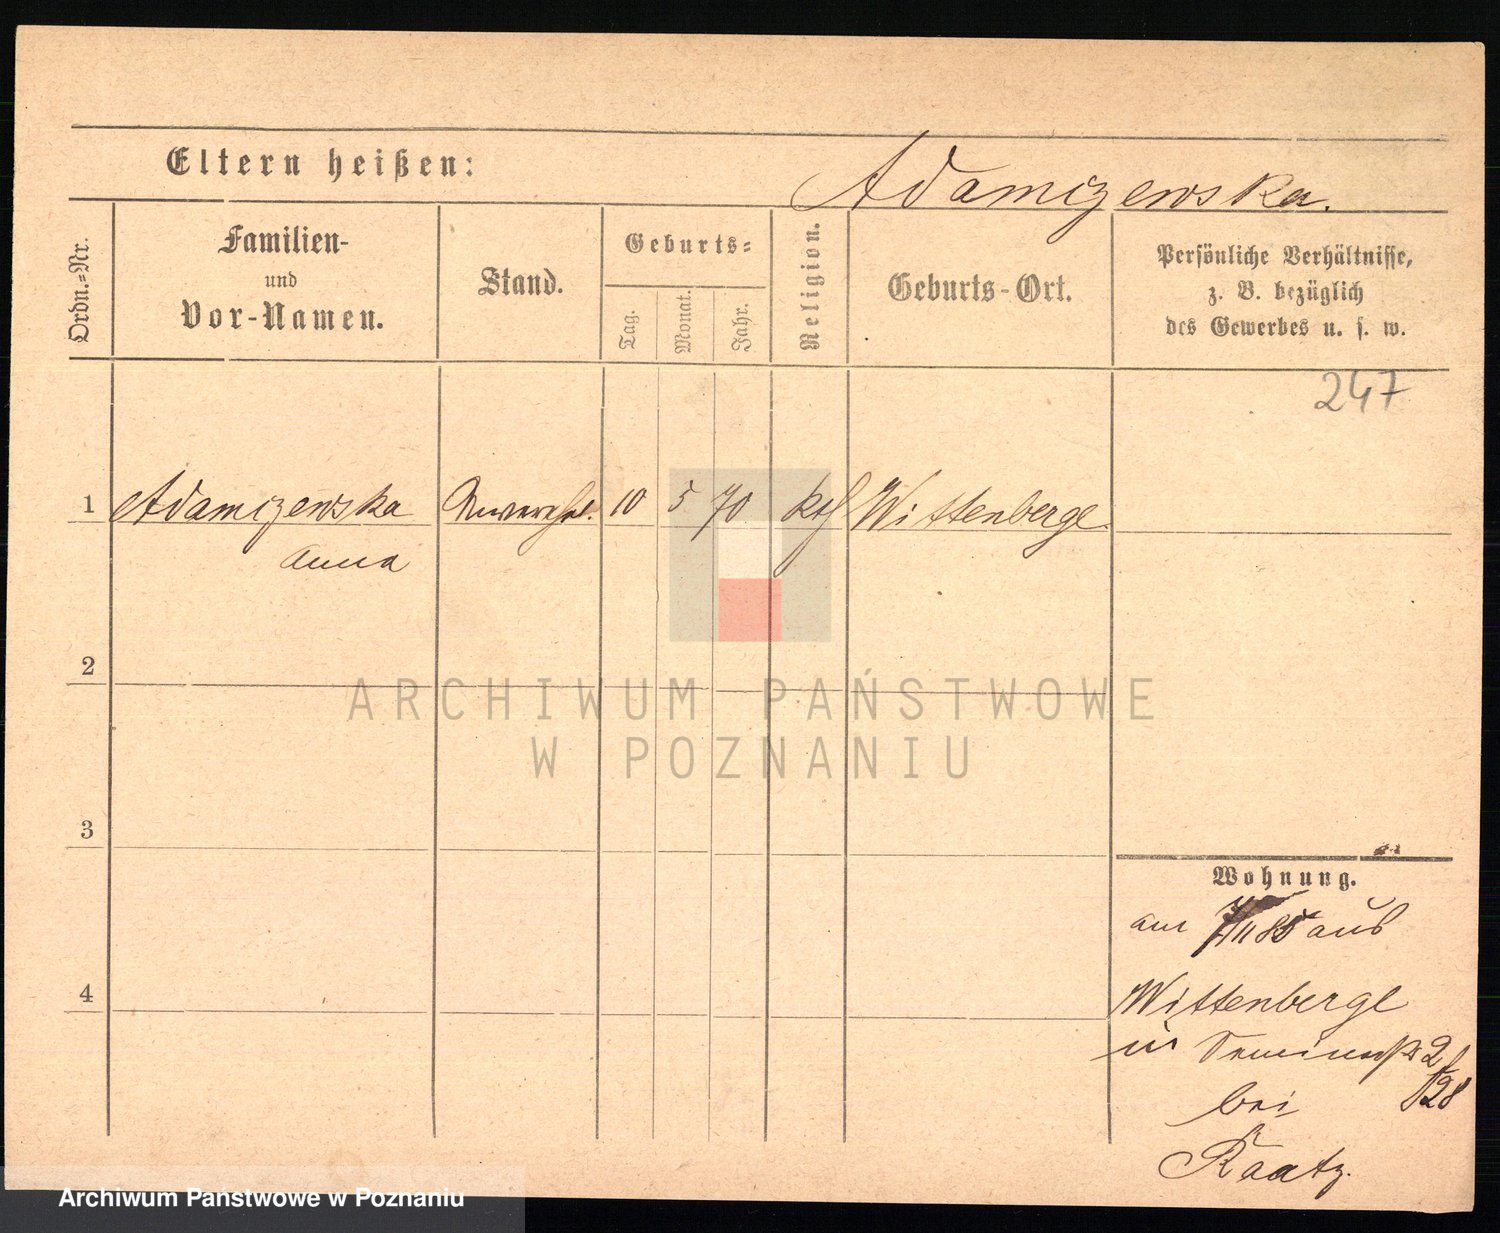 Eltern heißen:
Adamczewska.
Ordn.=Nr.
Familien-
und
Vor-Namen.
Stand.
Geburts=
Tag.
Monat.
Jahr.
Religion.
Geburts-Ort.
Persönliche Verhältnisse,
z. B. bezüglich
des Gewerbes u. s. w.
247
1 Adamczewska 10 5 70 kth Wittenberge
Anna
2
ARCHIWUM PAŃSTWOWE
W POZNANIU
3
Wohnung.
am 7/11 85 aus
4
Wittenberge
in 2
/28
bei
Raatz.
Archiwum Państwowe w Poznaniu